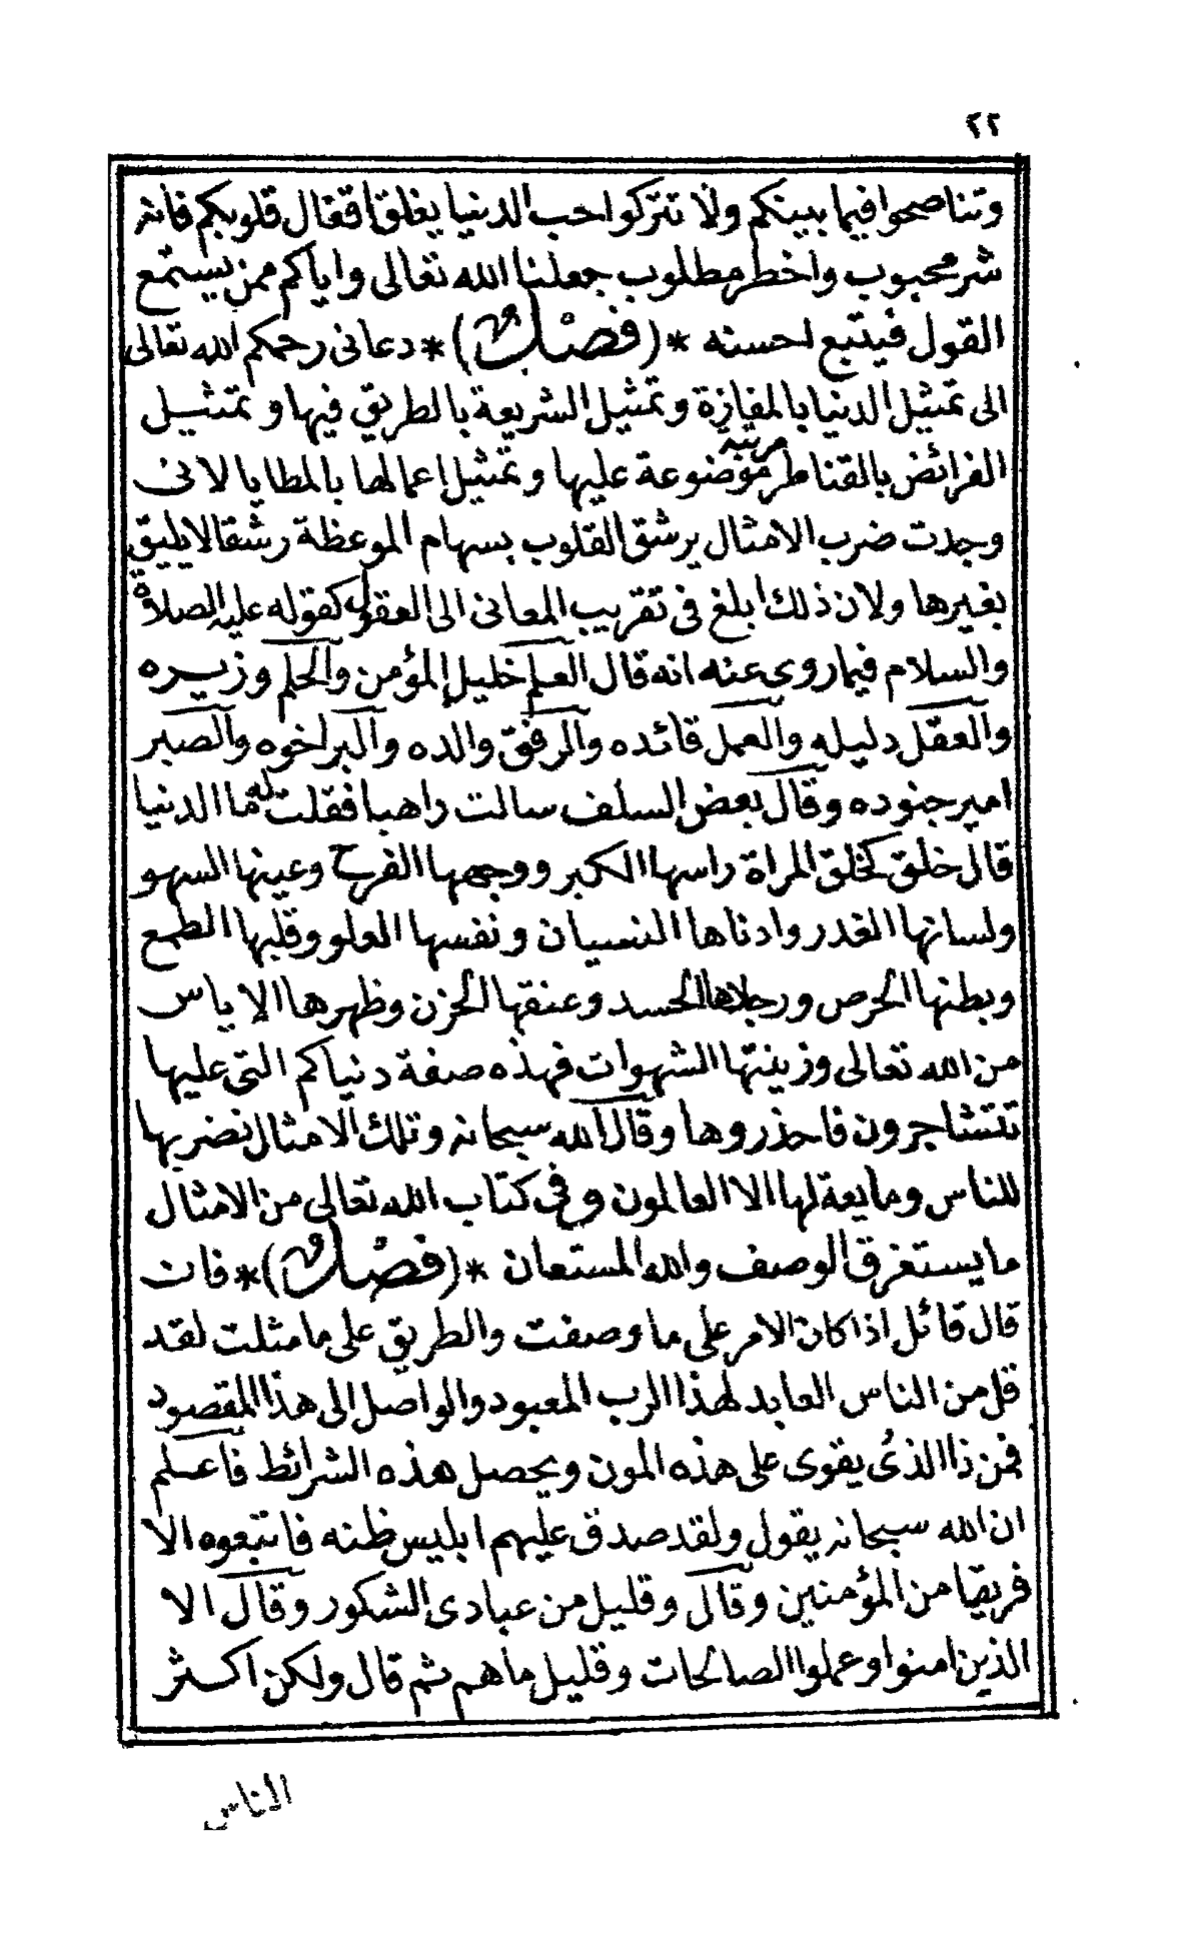 ٢٢
وتناصحوا فيما بينكم ولا تتركوا حب الدنيا يغلق اقفال قلوبكم فانه
شر محبوب واخطر مطلوب جعلنا الله تعالى واياكم ممن يستمع
القول فيتبع احسنه *(فصل)* دعانى رحمكم الله تعالى
الى تمثيل الدنيا بالمفازة وتمثيل الشريعة بالطريق فيها وتمثيل
مرتبة
الفرائض بالقناطر موضوعة عليها وتمثيل اعمالها بالمطايا لانى
وجدت ضرب الامثال يرشق القلوب بسهام الموعظة رشقا لا يليق
بغيرها ولان ذلك ابلغ فى تقريب المعانى الى العقول كقوله عليه الصلاة
والسلام فيما روى عنه انه قال العلم خليل المؤمن والحلم وزيره
والعقل دليله والعمل قائده والرفق والده والبر اخوه والصبر
امير جنوده وقال بعض السلف سالت راهبا فقلت له ما الدنيا
قال خلق كخلق المراة راسها الكبر ووجهها الفرح وعينها السهو
ولسانها الغدر واذناها النسيان ونفسها العلو وقلبها الطمع
وبطنها الحرص ورجلاها الحسد وعنقها الحزن وظهرها الاياس
من الله تعالى وزينتها الشهوات فهذه صفة دنياكم التى عليها
تتشاجرون فاحذروها وقال الله سبحانه وتلك الامثال نضربها
للناس وما يعقلها الا العالمون وفى كتاب الله تعالى من الامثال
ما يستغرق الوصف والله المستعان *(فصل)* فان
قال قائل اذا كان الامر على ما وصفت والطريق على ما مثلت لقد
قل من الناس العابد لهذا الرب المعبود والواصل الى هذا المقصود
فمن ذا الذى يقوى على هذه المون ويحصل هذه الشرائط فاعلم
ان الله سبحانه يقول ولقد صدق عليهم ابليس ظنه فاتبعوه الا
فريقا من المؤمنين وقال وقليل من عبادى الشكور وقال الا
الذين امنوا وعملوا الصالحات وقليل ما هم ثم قال ولكن اكثر
الناس